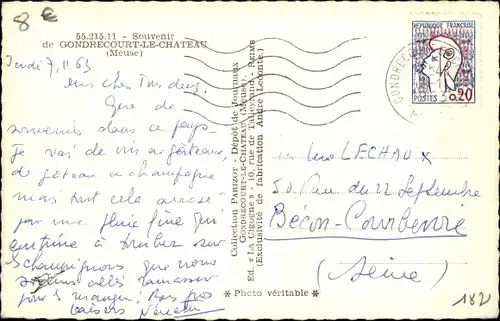 8 €
55.215.11 - Souvenir
de GONDRECOURT-LE-CHATEAU
(Meuse)
Jeudi 7.11.63
mes chers tous deux,
Que de
souvenirs dans ce pays.
Je vais de vin au gâteau,
de gâteau au champagne
mais tout cela arrosé
par une pluie fine qui
continue à tomber sur
champignons que nous
allés ramasser
pour manger. Gros
baisers
Collection PARIZOT - Dépôt de Journaux
GONDRECOURT-LE-CHATEAU (Meuse)
Ed. « La Cigogne » - 10, rue de Talleyrand, REIMS
(Exclusivité de fabrication André Leconte.)
★ Photo véritable ★
REPUBLIQUE FRANÇAISE
POSTES
0,20
GONDRECO
LECHAUX
50 Rue du 22 Septembre
Bécon-Courbevoie
(Seine)
182